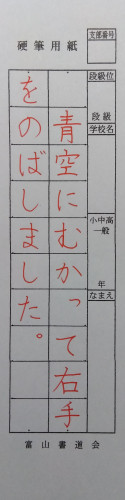 硬筆用紙
支部番号
段級位
段級
学校名
小中高
一般
年
なまえ
青空にむかって右手
をのばしました。
富山書道会